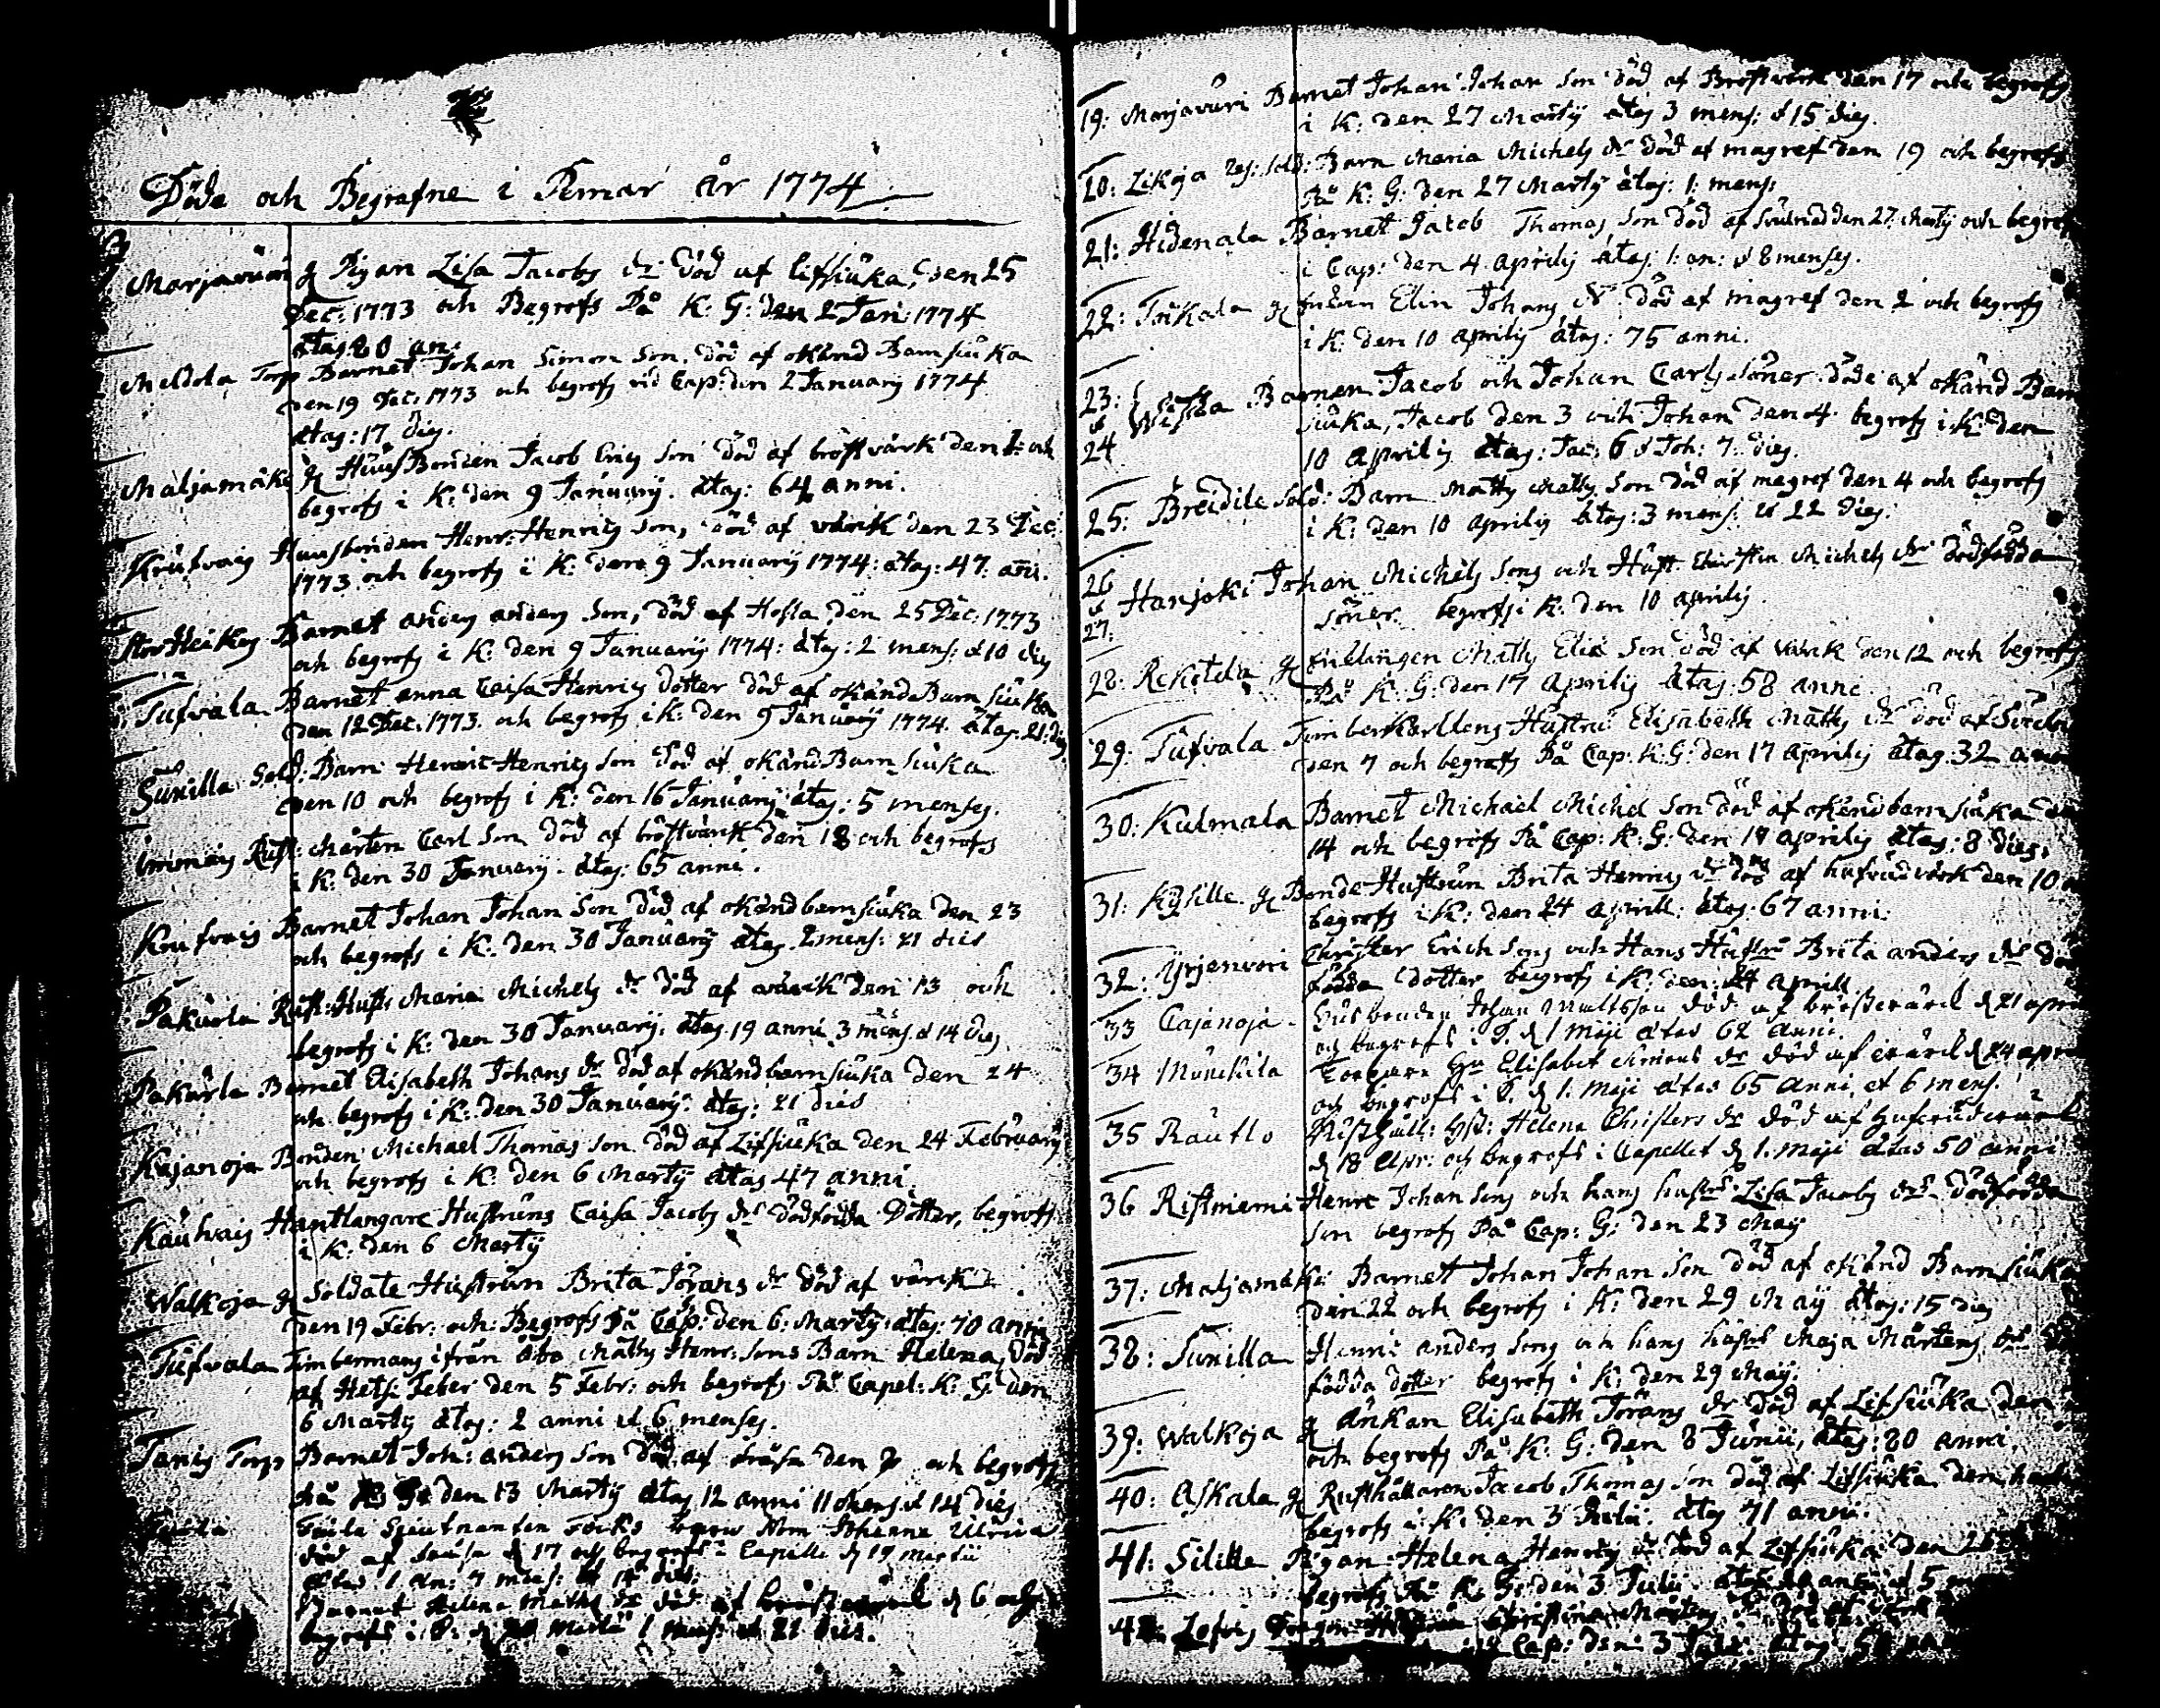 Döde och Begrafne i Pemar år 1774
Marjavuori g Pigan Lisa Jacobs dr död af lifsiuka, den 25
Dec: 1773 och Begrofs På K: G: den 2 Jan: 1774
ätas 20 an:
Meldola Torp Barnet Johan Simon Son, död af okänd Barnsiuka
den 19 Dec: 1773 och begrofs vid Cap: den 2 January 1774
ätas: 17 dies.
Maljamäki g HuusBonden Jacob Erics Son död af bröstvärk den 1: och
begrofs i K: den 9 January. ätas: 64 anni.
Krufvais Huusbonden Henr: Henrics son, död af värck den 23 Dec:
1773 och begrofs i K: den 9 January 1774: ätas: 47: ani.
Stor Heikes Barnet anders anders Son, död af Hosta den 25 Dec: 1773
och begrofs i K: den 9 January 1774: ätas: 2 mens: & 10 dies
Tufvala Barnet anna Caisa Henrics dotter död af okänd Barnsiuka
den 12 Dec: 1773. och begrofs i K: den 9 January 1774. ätas. 21: dies
Sunilla Sold: Barn Henric Henrics son död af okänd Barnsiuka
den 10 och begrofs i K: den 16 January ätas: 5 menses.
Rust: Mårten Carl Son död af bröstvärk den 18 och begrofs
i K: den 30 January. ätas: 65 anni.
Krufvais Barnet Johan Johan Son död af okänd barnsiuka den 23
och begrofs i K: den 30 January ätas 2 mens: 21 dies
Pakurla Rust: Hust: Maria Michels dr död af värck den 13 och
begrofs i K: den 30 January. ätas. 19 anni 3 mens & 14 dies
Pakurla Barnet Elisabeth Johans dr död af okänd barnsiuka den 24
och begrofs i K: den 30 January: ätas: 21 dies
Kajanoja Bonden Michael Thomas Son död af Lifsiuka den 24 February
och begrofs i K: den 6 Marty ätas 47 anni.
Käuhais Hantlangare Hustruns Caisa Jacobs drs dödfödda Dotter, begrofs
i K: den 6 Marty
Walkoja g Soldate Hustrun Brita Jörans dr död af värck
den 19 Febr: och Begrofs På Cap: den 6: Marty: ätas: 70 anni
Tufvala Timbermans ifrån åbo Matts Henr: Sons Barn Helena, död
af Hets: Feber den 5 Febr: och begrofs På Capel: K: G: den
6 Marty ätas: 2 anni et 6 menses.
Tanis Torp Barnet Joh: anders Son död af den och begrofs
På K: G: den 13 Marty ätas 12 anni 11 mens & 14 dies
Lieutnanten Johanna Ulrica
död af d 17 och begrofs i Capelle d 19 Martii
1 an: 7 mens:
Barnet Helena Matts dr död af bröstvärck d 6 och
begrofs i K: d 20 Martii 1 mens et 21 dies.
19: Marjavuri Barnet Johan Johan Son död af Bröstvärk den 17 och begrofs
i K: den 27 Marty ätas 3 mens: & 15 dies.
20: Likoja Res: sold: Barn Maria Michels dr död af magref den 19 och begrofs
På K: G: den 27 Marty ätas: 1: mens:
21: Hidenala Barnet Jacob Thomas Son död af den 27: Marty och begrofs
i Cap: den 4. aprilis ätas: 1: an: & 8 menses.
22: Tokala g Enkan Elin Johans dr död af magref den 2 och begrofs
i K: den 10 aprilis ätas: 75 anni.
23:
&
24 Wista Barnen Jacob och Johan Carls Söner döde af okänd Barn
siuka, Jacob den 3 och Johan den 4 begrofs i K: den
10 aprilis ätas: Jac: 6 & Joh: 7. dies.
25: Breidile Sold: Barn Matts Matts Son död af magref den 4 och begrofs
i K: den 10 aprilis ätas: 3 mens: & 22 dies.
26
&
27: Hanjoki Johan Michels Sons och Hust Christin Michels drs dödfödda
söner begrofs i K: den 10 aprilis.
28: Rekotela g Enklingen Matts Elia Son död af värck den 12 och begrofs
På K: G: den 17 aprilis ätas: 58 anni.
29: Tufvala Timberkarllens Hustru Elisabeth Matts dr död af
den 7 och begrofs På Cap: K: G: den 17 aprilis ätas. 32 anni
30: Kulmala Barnet Michael Michel Son död af okänd barnsiuka den
14 och begrofs På Cap: K: G: den 17 aprilis ätas: 8 dies.
31: Kysille g Bonde Hustrun Brita Henrics dr död af hufvudvärk den 10
begrofs i K: den 24 aprill: ätas: 67 anni:
32: Yrjenvori Christer Erich Sons och Hans Hustru Brita anders drs död
födda dotter begrofs i K: den: 24 aprill
33 Cajanoja Husbonden Johan Mattsson död af bröstwärck d 21 apri
och begrofs i K. d 1 Maji ätas 62 anni.
34 Munckila Elisabet Simons dr död af wärck d 24 apr
och begrofs i K. d 1. Maji ätas 65 anni. et 6 mens.
35 Rautlo Rusthåll: Hst: Helena Christers dr död af hufwudwärck
d 18 Apr: och begrofs i Capellet d 1. Maji ätas 50 anni
36 Ristniemi Henrc Johan Sons och hans hustrs Lisa Jacobs drs dödfödda
Son begrofs På Cap: G: den 23 May
37: Maljamäki Barnett Johan Johan Son död af okänd Barnsiuka
den 22 och begrofs i K: den 29 May ätas: 15 dies
38: Sunilla Henric anders Sons och hans hustrs Maja Mårtens drs död
födda dotter begrofs i K: den 29 May.
39: Walkoja g änkan Elisabeth Jörans dr död af Lifsiuka den
och begrofs På K: G: den 8 Junii, ätas: 80 anni.
40: Askala g Rusthållaren Jacob Thomas Son död af Lifsiuka den
begrofs i K: den 3 Julii. ätas 71 anni.
41: Silille Pigan Helena Henrics dr död af Lifsiuka den 26
begrofs På K: G: den 3 Julii. ätas anni & 5
42: Christina Mårtens dr
Cap: den 3 Julii ätas: